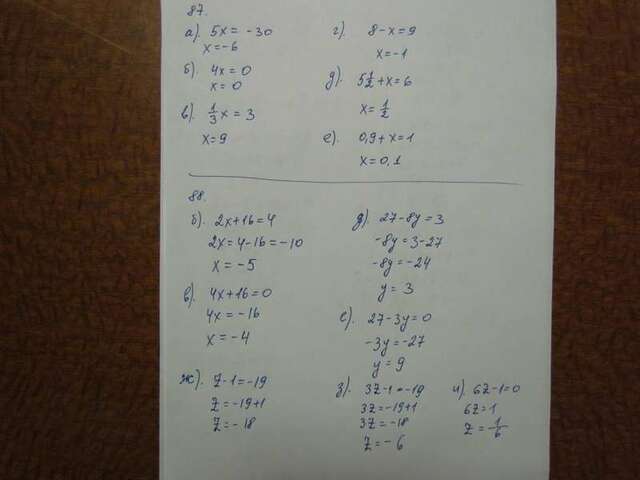 87.
а). 5x = -30
x = -6
б). 4x = 0
x = 0
в). 1/3 x = 3
x = 9
г). 8 - x = 9
x = -1
д). 5 1/2 + x = 6
x = 1/2
е). 0,9 + x = 1
x = 0,1
88.
б). 2x + 16 = 4
2x = 4 - 16 = -10
x = -5
в). 4x + 16 = 0
4x = -16
x = -4
д). 27 - 8y = 3
-8y = 3 - 27
-8y = -24
y = 3
е). 27 - 3y = 0
-3y = -27
y = 9
ж). z - 1 = -19
z = -19 + 1
z = -18
з). 3z - 1 = -19
3z = -19 + 1
3z = -18
z = -6
и). 6z - 1 = 0
6z = 1
z = 1/6